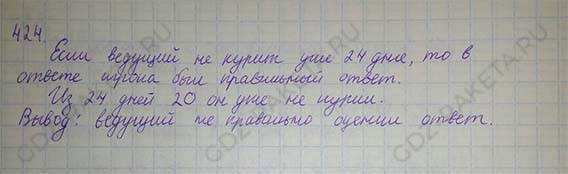 424.
Если ведущий не курит уже 24 дня, то в
ответе игрока был правильный ответ.
Из 24 дней 20 он уже не курил.
Вывод: ведущий не правильно оценил ответ.
GDZ-RAKETA.RU
GDZ-RAKETA.RU
GDZ-RAKETA.RU